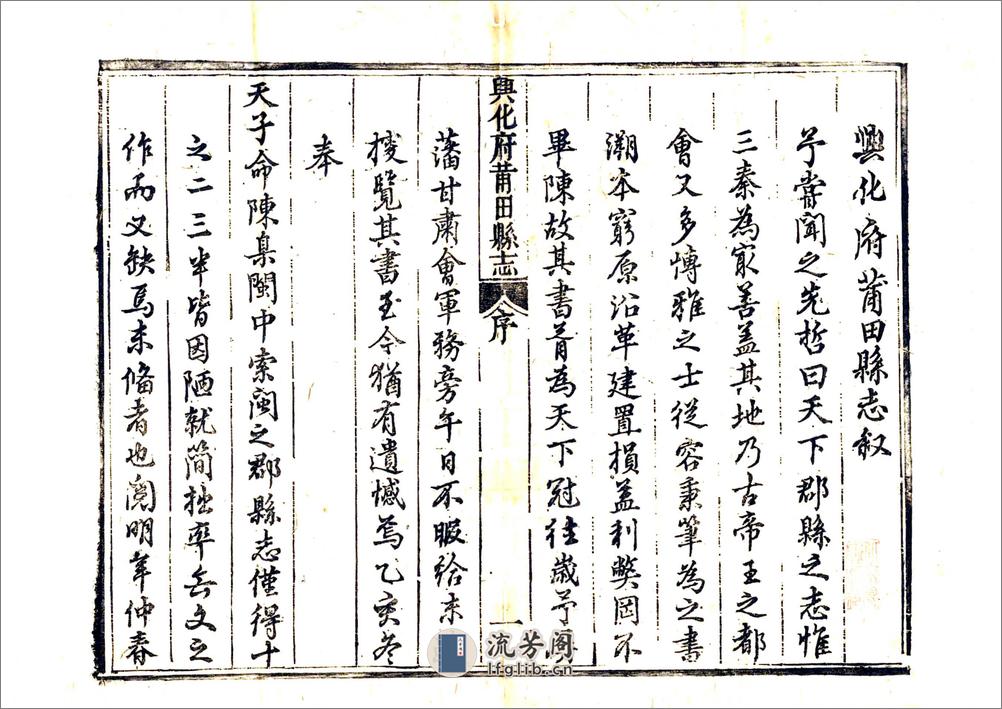 興化府莆田縣志叙
予嘗聞之先哲曰天下郡縣之志惟
三秦為最善蓋其地乃古帝王之都
會又多博雅之士從容秉筆為之書
溯本窮原沿革建置損益利弊罔不
畢陳故其書胥為天下冠往歲予
興化府莆田縣志 序 一
藩甘肅會軍務旁午日不暇給未
披覽其書至今猶有遺憾焉乙亥冬
奉
天子命陳臬閩中索閩之郡縣志僅得十
之二三半皆因陋就簡拙率無文之
作而又缺焉未備者也閱明年仲春
流芳阁
lfglib.cn